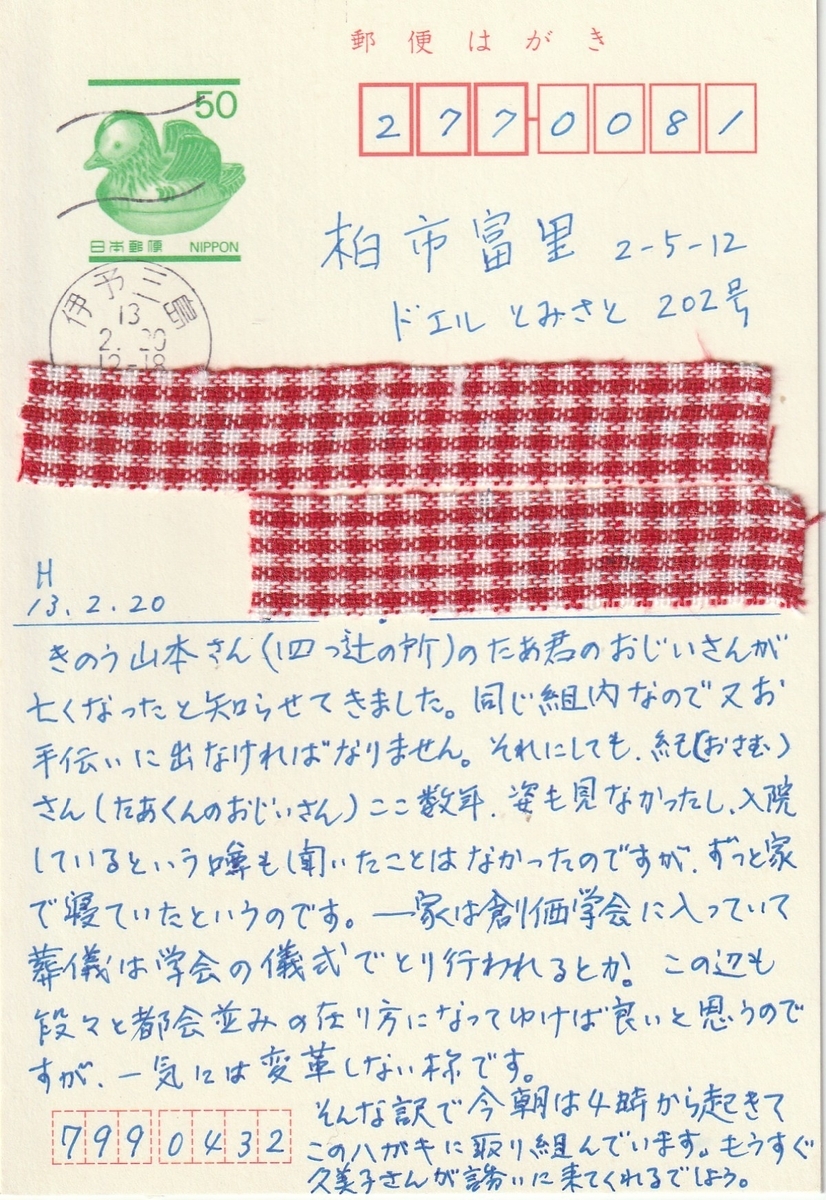 郵便はがき
50
日本郵便 NIPPON
277-0081
伊予三島
13
2.20
12-18
柏市富里 2-5-12
ドエルとみさと 202号
H
13.2.20
きのう山本さん(四つ辻の所)のたあ君のおじいさんが
亡くなったと知らせてきました。同じ組内なので又お
手伝いに出なければなりません。それにしても、紀(おさむ)
さん(たあくんのおじいさん)ここ数年、姿も見なかったし、入院
しているという噂も聞いたことはなかったのですが、ずっと家
で寝ていたというのです。一家は創価学会に入っていて
葬儀は学会の儀式でとり行われるとか。この辺も
段々と都会並みの在り方になってゆけば良いと思うので
すが、一気には変革しない様です。
そんな訳で今朝は4時から起きて
このハガキに取り組んでいます。もうすぐ
久美子さんが誘いに来てくれるでしょう。
7990432